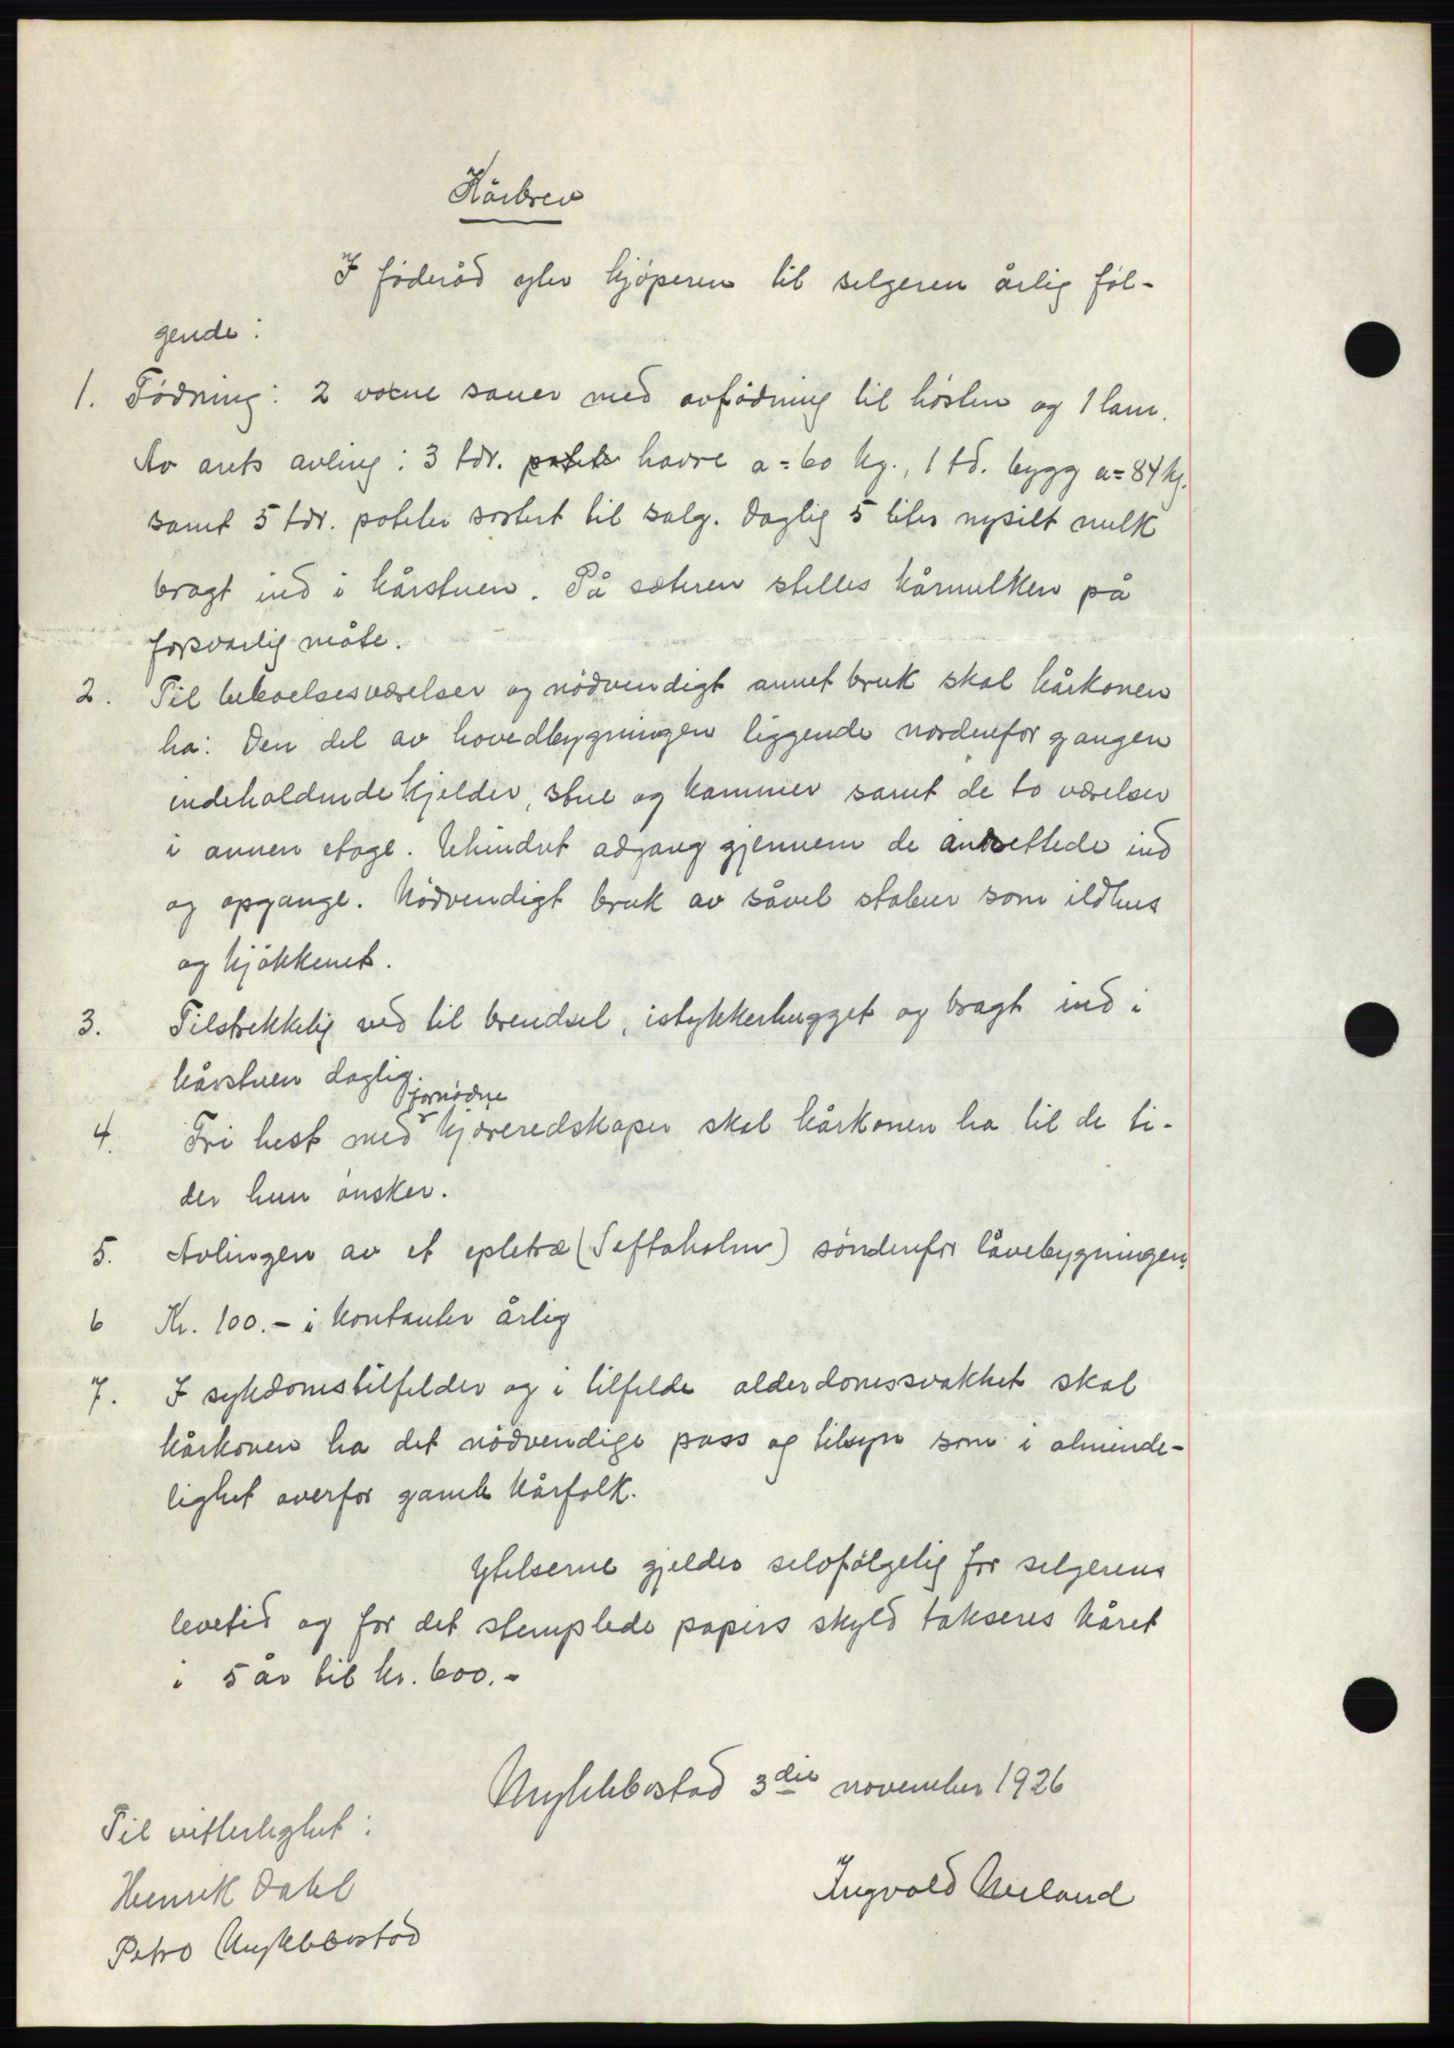 Kårbrev
I føderåd yter kjøperen til selgeren årlig føl-
gende:
1. Fødning: 2 voxne sauer med avfødning til høsten og 1 lam.
Av årets avling: 3 tdr. havre a=60 kg., 1 td. bygg a=84 kg.
samt 5 tdr. poteter sortert til salg. Daglig 5 liter nysilt melk
bragt ind i kårstuen. På sæteren stelles kårmelken på
forsvarlig måte.
2. Til beboelsesværelser og nødvendigt annet bruk skal kårkonen
ha: Den del av hovedbygningen liggende nordenfor gangen
indeholdende kjelder, stue og kammer samt de to værelser
i annen etage. Uhindret adgang gjennem de innrettede ind
og opgange. Nødvendigt bruk av såvel stabur som ildhus
og kjøkkenet.
3. Tilstrekkelig ved til brendsel, istykkerhugget og bragt ind i
kårstuen daglig.
4. Fri hest med fornødne kjøreredskaper skal kårkonen ha til de ti-
der hun ønsker.
5. Avlingen av et epletræ (Seftaholm) søndenfor låvebygningen.
6 Kr. 100.- i kontanter årlig
7. I sykdomstilfelder og i tilfelde alderdomssvakhet skal
kårkonen ha det nødvendige pass og tilsyn som i alminde-
lighet overfor gamle kårfolk.
Ytelserne gjelder selvfølgelig for selgerens
levetid og for det stemplede papirs skyld takseres kåret
i 5 år til kr. 600.-
Myklebostad 3die november 1926
Til vitterlighet:
Henrik Dahl
Ingvald Nerland
Petro Myklebostad